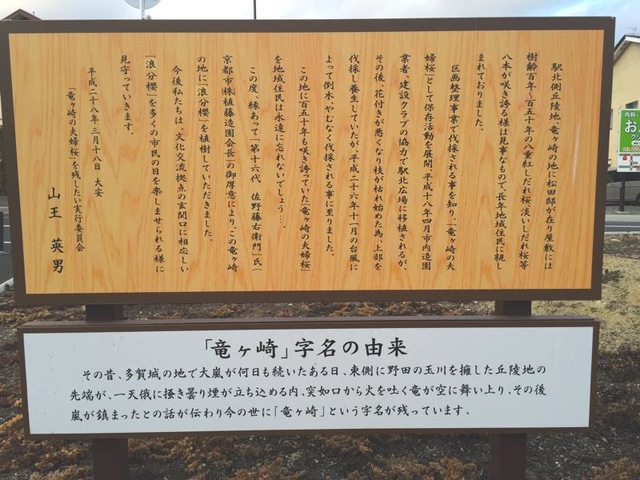 駅北側丘陵地、竜ヶ崎の地に松田邸が在り屋敷には
樹齢百年～百五十年の八重紅しだれ桜、淡いしだれ桜等
八本が咲き誇る様は見事なもので、長年地域住民に親し
まれておりました。
区画整理事業で伐採される事を知り、「竜ヶ崎の夫
婦桜」として保存活動を展開、平成十八年四月市内造園
業者、建設クラブの協力で駅北広場に移植されるが、
その後、花付きが悪くなり枝が枯れ始めた為、上部を
伐採し養生していたが、平成二十六年十一月の台風に
よって倒木、やむなく伐採される事に至りました。
この地に百五十年も咲き誇っていた「竜ヶ崎の夫婦桜」
を地域住民は永遠に忘れないでしょう…。
この度、縁あって「第十六代 佐野藤右衛門」氏(
京都市㈱植藤造園会長)の御厚意により、この竜ヶ崎
の地に「浪分櫻」を植樹していただきました。
今後私たちは、文化交流拠点の玄関口に相応しい
「浪分櫻」を多くの市民の目を楽しませられる様に
見守っていきます。
平成二十八年三月十八日 大安
「竜ヶ崎の夫婦桜」を残したい実行委員会
山王 英男
「竜ヶ崎」字名の由来
その昔、多賀城の地で大嵐が何日も続いたある日、東側に野田の玉川を擁した丘陵地の
先端が、一天俄に掻き曇り煙が立ち込める内、突如口から火を吐く竜が空に舞い上り、その後
嵐が鎮まったとの話が伝わり今の世に「竜ヶ崎」という字名が残っています。